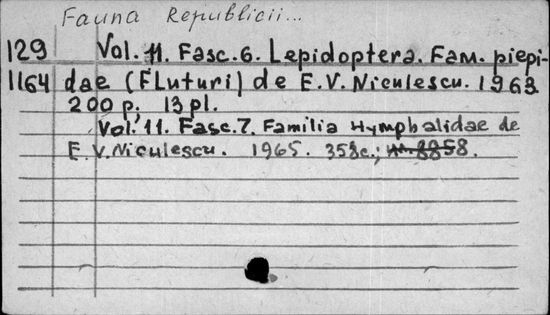 Fauna Republicii...
129 Vol. 11. Fasc. 6. Lepidoptera. Fam. piepi-
1164 dae (Fluturi) de E.V. Niculescu. 1963
200 p. 13 pl.
Vol. 11. Fasc. 7. Familia Nymphalidae de
E.V. Niculescu. 1965. 358c.;